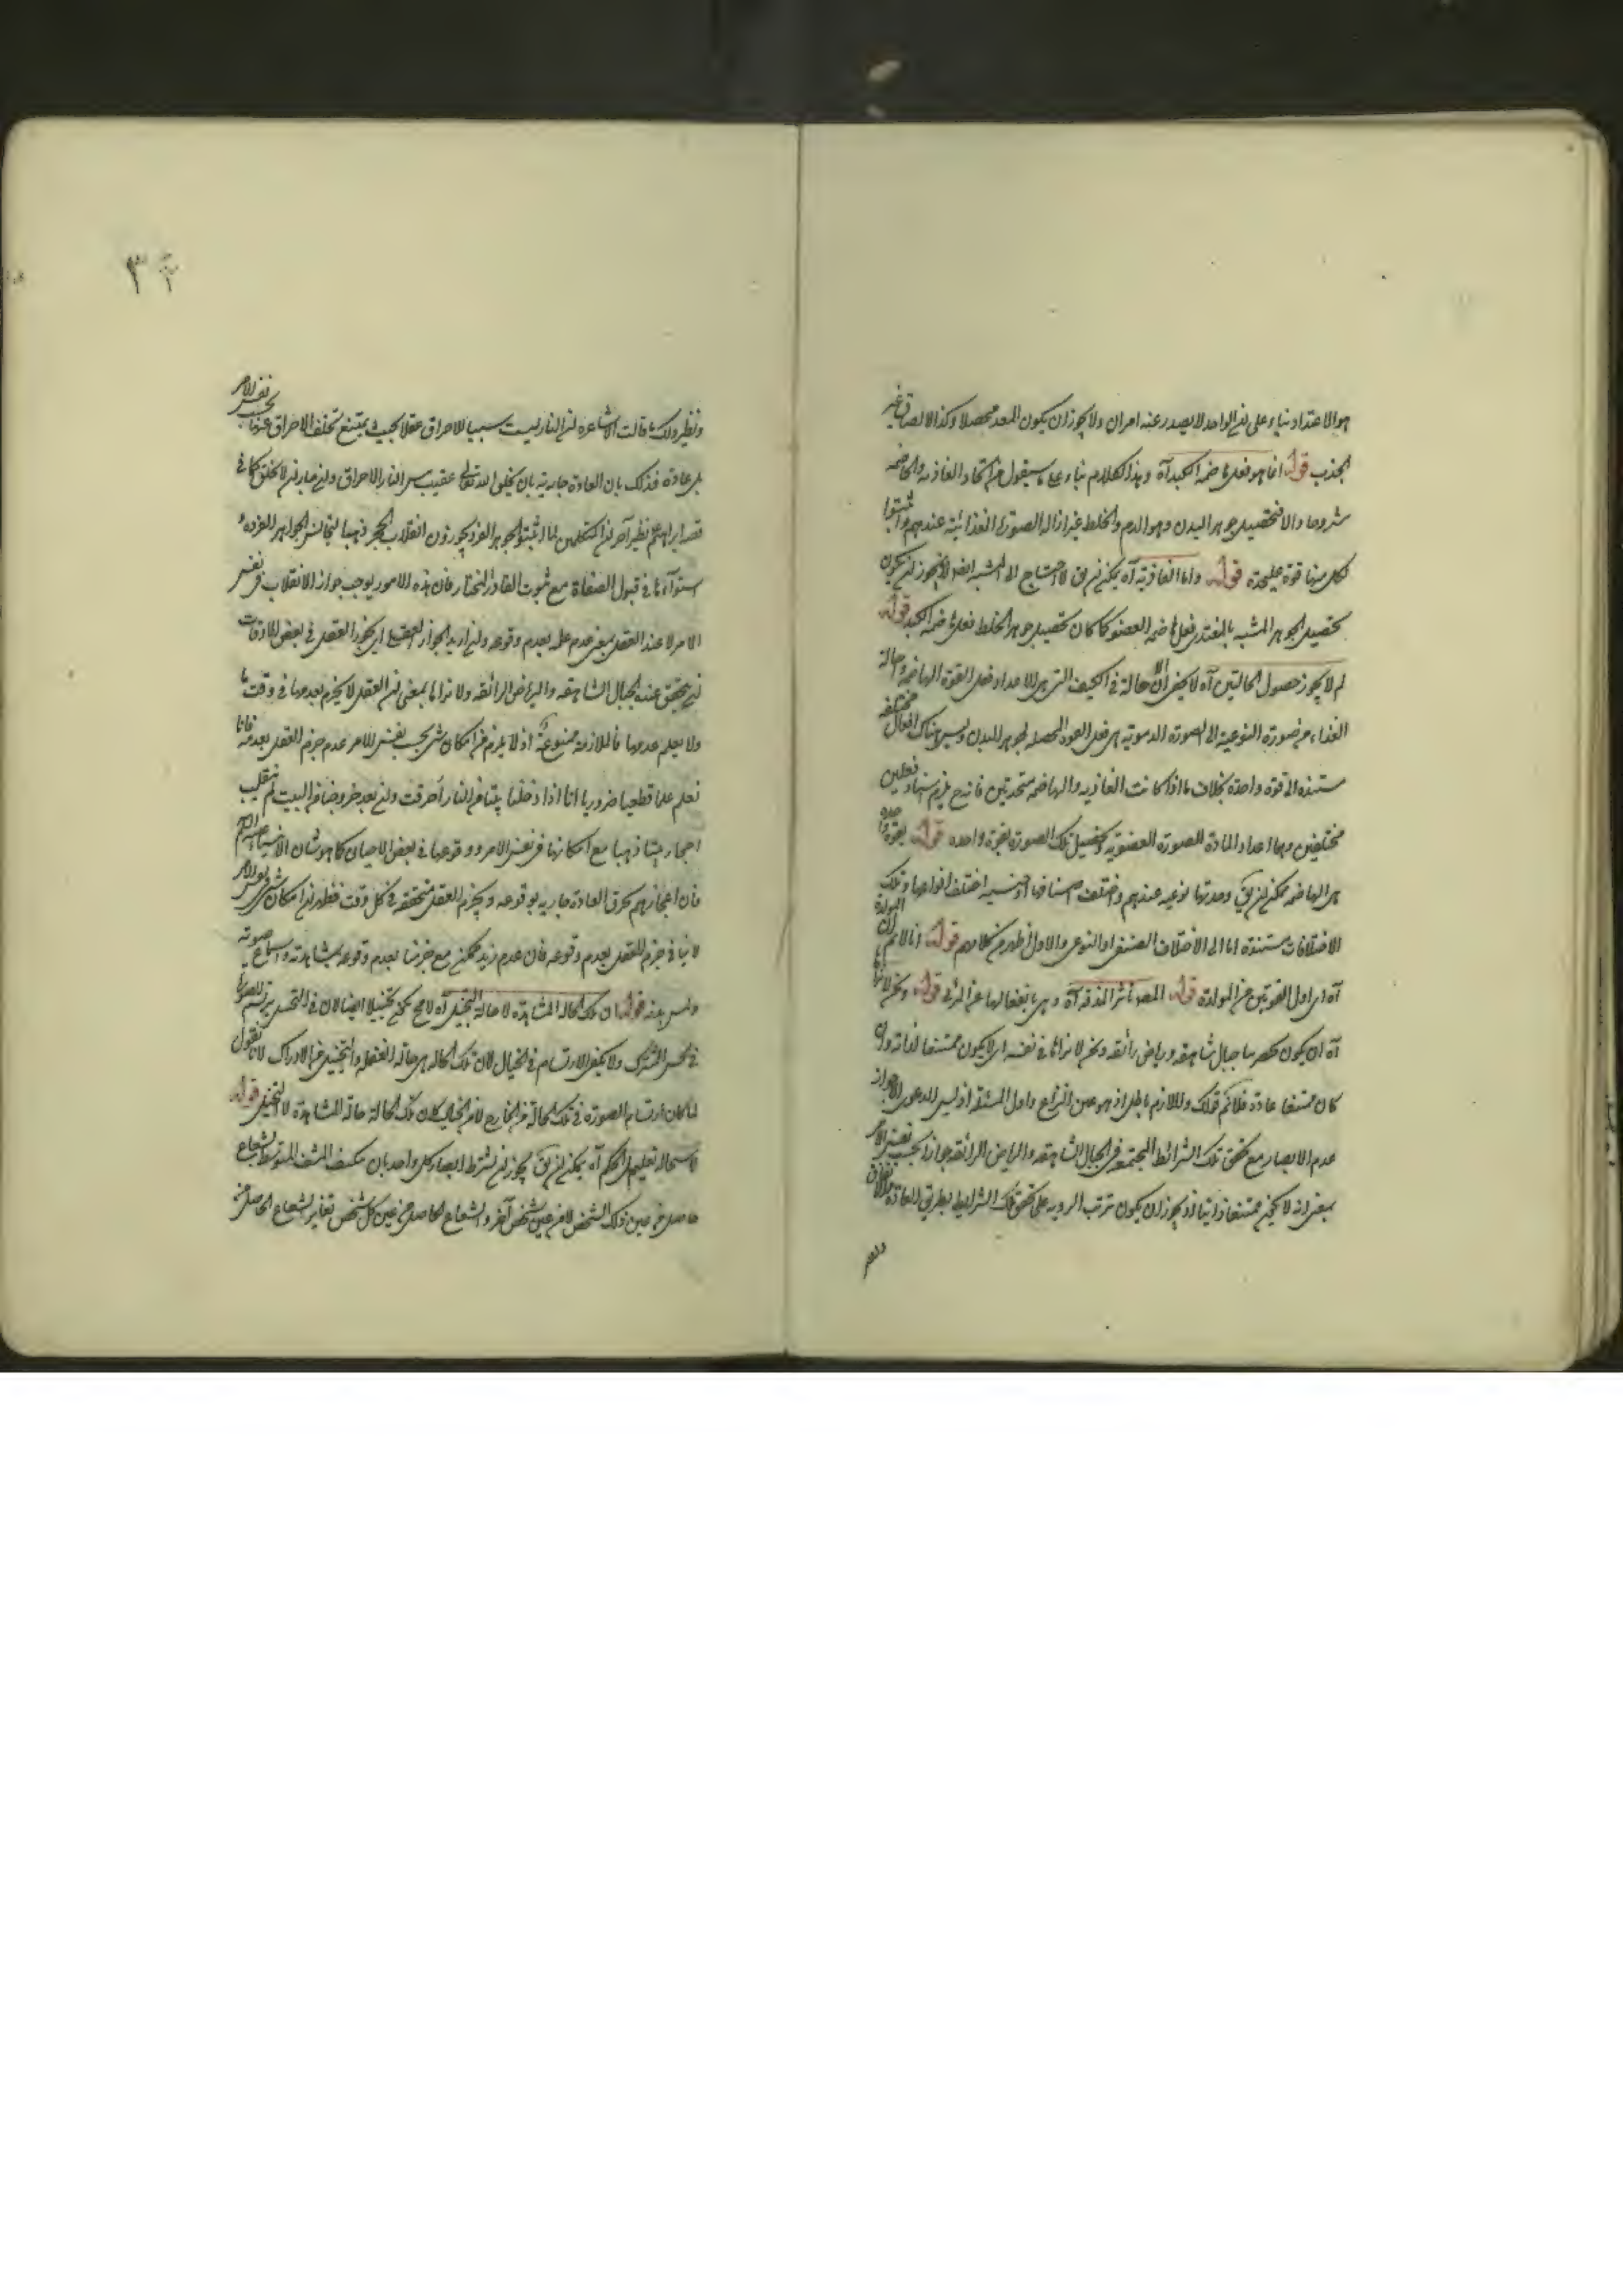 هو الاعتداد بناء على ان الواحد لا يصدر عنه امران ولا يجوز ان يكون المعد محصلا وكذا الالصاق غير
الجذب قوله انما هو فعل هاضمة الكبد آه وهذا الكلام بناء على ما سيقول من اتحاد الغاذية والهاضمة
والا فتحصيل جوهر البدن وهو الدم والخلط غير ازالة الصورة الغذائية عندهم واثبتوا
لكل منها قوة عليحدة قوله واما الغاذية آه يمكن ان يق لا احتياج الى المشبه ايضا لم لا يجوز ان يكون
تحصيل الجوهر المشبه بالمغتذي فعل هاضمة العضو كما كان تحصيل جوهر الخلط فعل هاضمة الكبد قوله
لم لا يجوز حصول الحالتين آه لا يخفى ان الاحالة في الكيف التي هي الاعداد فعل القوة الهاضمة واحالة
الغذاء من صورة النوعية الى الصورة الدموية هي فعل القوة المحصلة لجوهر البدن وليس هناك افعال مختلفة
مستندة الى قوة واحدة بخلاف ما اذا كانت الغاذية والهاضمة متحدتين فانه ح يلزم استناد فعلين
مختلفين وهما اعداد المادة للصورة العضوية وتحصيل تلك الصورة بقوة واحدة قوله بقوة واحدة
هي الهاضمة يمكن ان يق وحدتها نوعية عندهم واختلف اصنافها او جنسية اختلف انواعها وتلك
الاختلافات مستندة اما الى الاختلاف الصنفي او النوعي والاول اظهر من كلامهم قوله انا لا نم ان المولدة
آه اي اول القوتين من المولدة قوله آه وهي انفعالها عن المرئي قوله ونحن لا نراها
آه ان يكون بحضرتنا جبال شاهقة ورياض رائقة ونحن لا نراها في نفسه اي لا يكون ممتنعا لذاته وان
كان ممتنعا عادة فلا نم قولك واللازم باطل اذ هو عين النزاع واول المسئلة اذ ليس الدعوى الا جواز
عدم الابصار مع تحقق تلك الشرائط المجتمعة في الجبال الشاهقة والرياض الرائقة جوازا بحسب نفس الامر
بمعنى انه لا يكون ممتنعا ذاتيا اذ يجوز ان يكون ترتب الروية على تحقق تلك الشرايط بطريق العادة
ونظير ذلك ما قالت الاشاعرة ان النار ليست سببا للاحراق عقلا بحيث يمتنع تخلف الاحراق عنها بحسب نفس الامر
بل عادة فذلك بان العادة جارية بان يخلق الله تعالى عقيب مس النار الاحراق وان جاز ان لا يخلق كما في
قصة ابراهيم عم نظير آخر ان المتكلمين لما اثبتوا الجوهر الفرد يجوزون انقلاب الحجر ذهبا لتجانس الجواهر الفردة و
استوائها في قبول الصفات مع ثبوت القادر المختار فان هذه الامور يوجب جواز الانقلاب في نفس
الامر لا عند العقل بمعنى عدم علمه بعدم وقوعه وان اريد الجواز العقلي اي يجوز العقل في بعض الاوقات
ان يتحقق عنده الجبال الشاهقة والرياض الرائقة ولا نراها بمعنى ان العقل لا يجزم بعدمها في وقت ما
ولا يعلم عدمها فالملازمة ممنوعة اذ لا يلزم من امكان شيء بحسب نفس الامر عدم جزم العقل بعدمه فانا
نعلم علما قطعيا ضروريا انا اذا دخلنا بيتنا في النار احرقت وان بعد خروجنا من البيت لم ينقلب
احجار بيتنا ذهبا مع امكانها في نفس الامر ووقوعها في بعض الاحيان كما هو شان الانبياء عليهم السلام
فان اعجازهم بخرق العادة جارية بوقوعه ويجزم العقل متحققة في كل وقت فظهر ان امكان شيء في نفس الامر
لا ينافي جزم العقل بعدم وقوعه فان عدم زيد ممكن مع جزمنا بعدم وقوعه بمشاهدته واستماع صوته
ولمس بدنه قوله ان تلك الحالة المشاهدة لا حالة التخيل آه لا مح يكون تخييلا ايضا لان في التخيل يرتسم الصورة
في الحس المشترك ولا يكفي الارتسام في الخيال لان تلك الحالة هي حالة الغفلة والتخيل من الادراك لانا نقول
لما كان ارتسام الصورة في تلك الحالة من الخارج لا من الخيال يكون تلك الحالة حالة المشاهدة لا التخيل قوله
لاستحالة تعليل الحكم آه يمكن ان يق يجوز ان يشترط ابصار كل واحد بان تكيف المشف المتوسط بشعاع
حاصل من عين ذلك الشخص لا من عين شخص آخر والشعاع الحاصل من عين كل شخص تغاير الشعاع الحاصل من